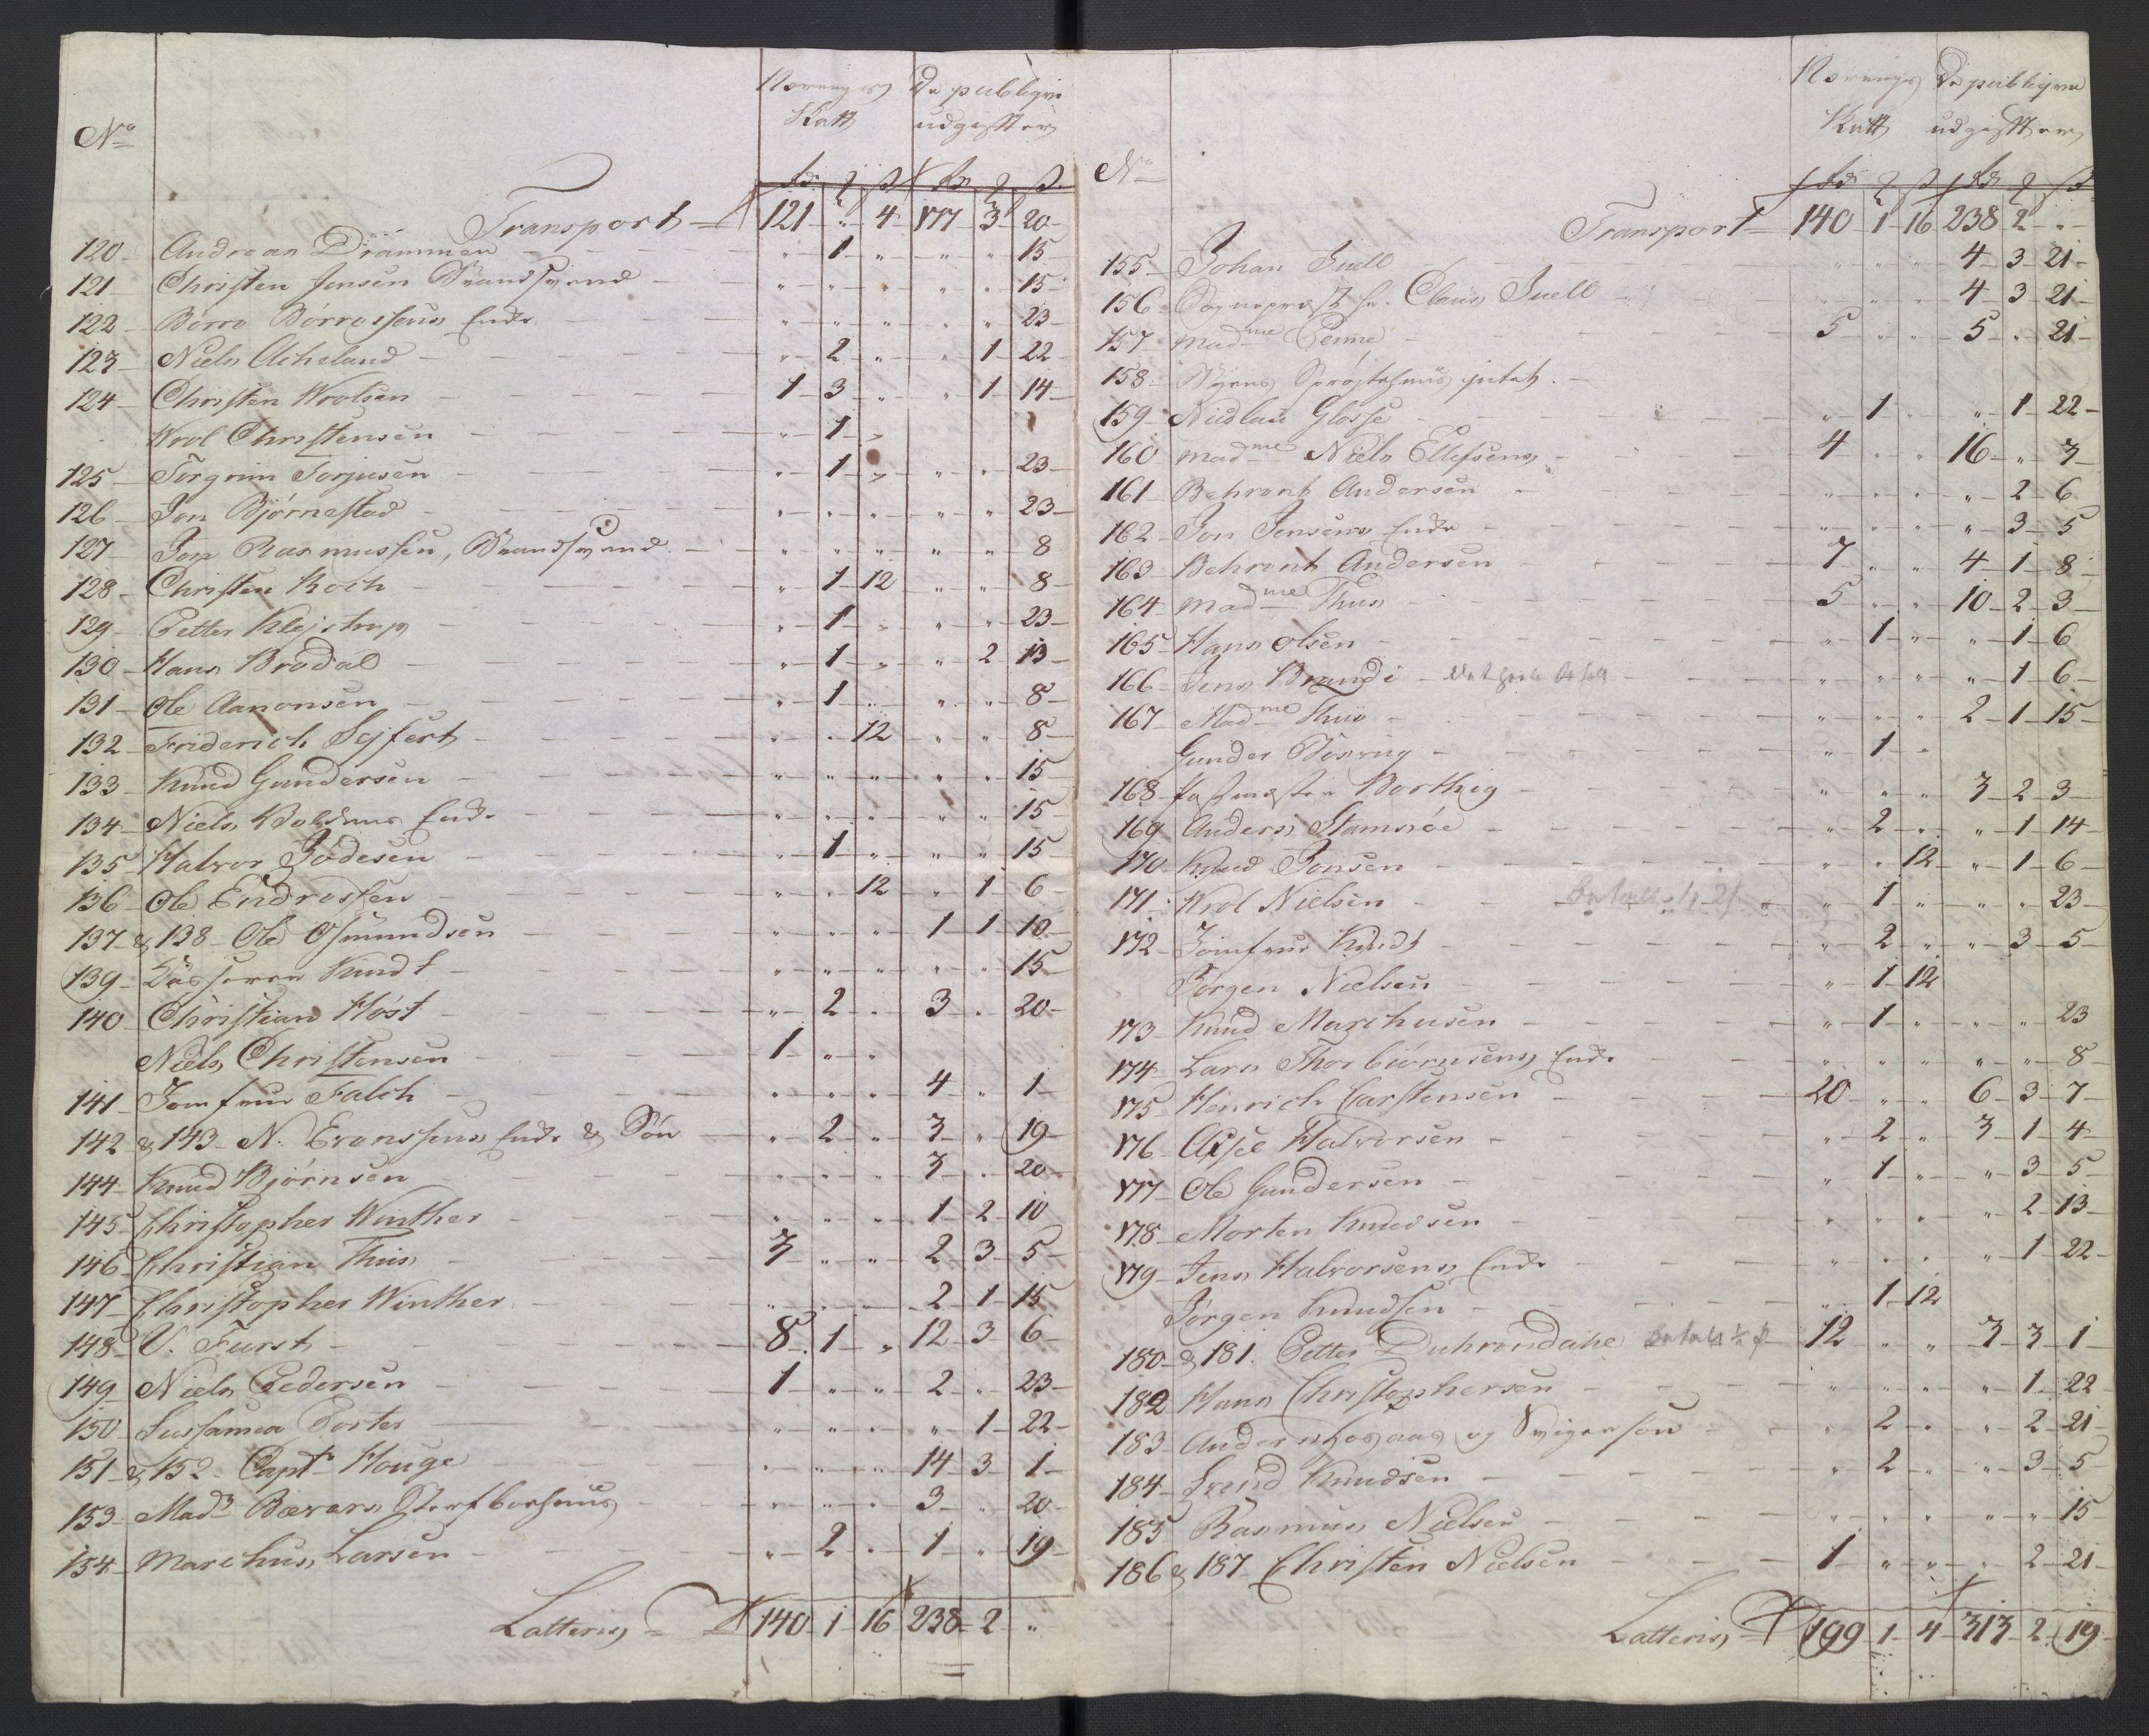 Nærings De publiqve
Skatt udgifter
No
Rdr ß Rdr ß
Transport 121 " 4 177 3 20
120 Andreas Drammen " 1 " " " 15
121 Christen Jensen Brandsvend " " " " " 15
122 Børre Børresens Enke " " " " " 23
123 Niels Acheland " 2 " " 1 22
124 Christen Wrolsen 1 3 " " 1 14
Wrol Christensen " 1 "
125 Torgrim Torjusen " 1 " " " 23
126 Jon Bjørnestad " " " " " 23
127 Jon Rasmussen, Brandsvend " " " " " 8
128 Christen Koch " 1 12 " " 8
129 Petter Klejstrup " 1 " " " 23
130 Hans Brodal " 1 " " 2 13
131 Ole Aanonsen " 1 " " " 8
132 Friderich Sejfert " " 12 " " 8
133 Knud Gundersen " " " " " 15
134 Niels Enke " " " " " 15
135 Halvor Jodesen " 1 " " " 15
136 Ole Endresen " " 12 " 1 6
137 & 138 Ole Osmundsen " " " 1 1 10
139 Knudt " " " " " 15
140 Christian Høst " 2 " 3 " 20
Niels Christensen 1 " "
141 Jomfrue Falch " " " 4 " 1
142 & 143 N: Evensens Enke & Søn " 2 " 3 " 19
144 Knud Bjørnsen " " " 3 " 20
145 Christopher Winther " " " 1 2 10
146 Christian Thiis 3 " " 2 3 5
147 Christopher Winther " " " 2 1 15
148 V. Furst 8 1 " 12 3 6
149 Niels Pedersen 1 " " 2 " 23
150 Sussanna Porter " " " " 1 22
151 & 152 Capt Houge " " " 14 3 1
153 Mad Bævers " " " 3 " 20
154 Marchus Larsen " 2 " 1 " 19
Latteris 140 1 16 238 2 "
Nærings De publiqve
Skatt udgifter
No
Rdr ß Rdr ß
Transport 140 1 16 238 2 "
155 Johan Juell " " " 4 3 21
156 Sogneprest hr. Claus Juell " " " 4 3 21
157 Madme Penne 5 " " 5 " 21
158 Byens Sprøjtehuus intet.
159 Nicolai Glosse " 1 " " 1 22
160 Madme Niels Ellefsens 4 " " 16 " 3
161 Behrent Andersen " " " " 2 6
162 Jon Jensens Enke " " " " 3 5
163 Behrent Andersen 7 " " 4 1 8
164 Madme Thiis 5 " " 10 2 3
165 Hans Olsen " 1 " " 1 6
166 Jens Brandi " " " " 1 6
167 Madme Thiis " " " 2 1 15
Gunder " 1 "
168 Borthig " " " 3 2 3
169 Anders Stamsøe " 2 " " 1 14
170 Knud Jonsen " " 12 " 1 6
171 Wrol Nielsen " 1 " " " 23
172 Jomfrue Knudt " 2 " " 3 5
Jørgen Nielsen " 1 12
173 Knud Marchusen " 1 " " " 23
174 Lars Thorbiørnsens Enke " " " " " 8
175 Henrich Carstensen 20 " " 6 3 7
176 Halvorsen " 2 " 3 1 4
177 Ole Gundersen " 1 " " 3 5
178 Morten Knudsen " " " " 2 13
179 Jens Halvorsens Enke " " " " 1 22
Jørgen Knudsen " 1 12
180 & 181. Petter Duhrendahe betalt ½ 12 " " 3 3 1
182 Hans Christophersen " " " " 1 22
183 Anders og Svigersøn " 2 " " 2 21
184 Svend Knudsen " 2 " " 3 5
185 Rasmus Nielsen " " " " " 15
186 & 187 Christen Nielsen 1 " " " 2 21
Latteris 199 1 4 313 2 19